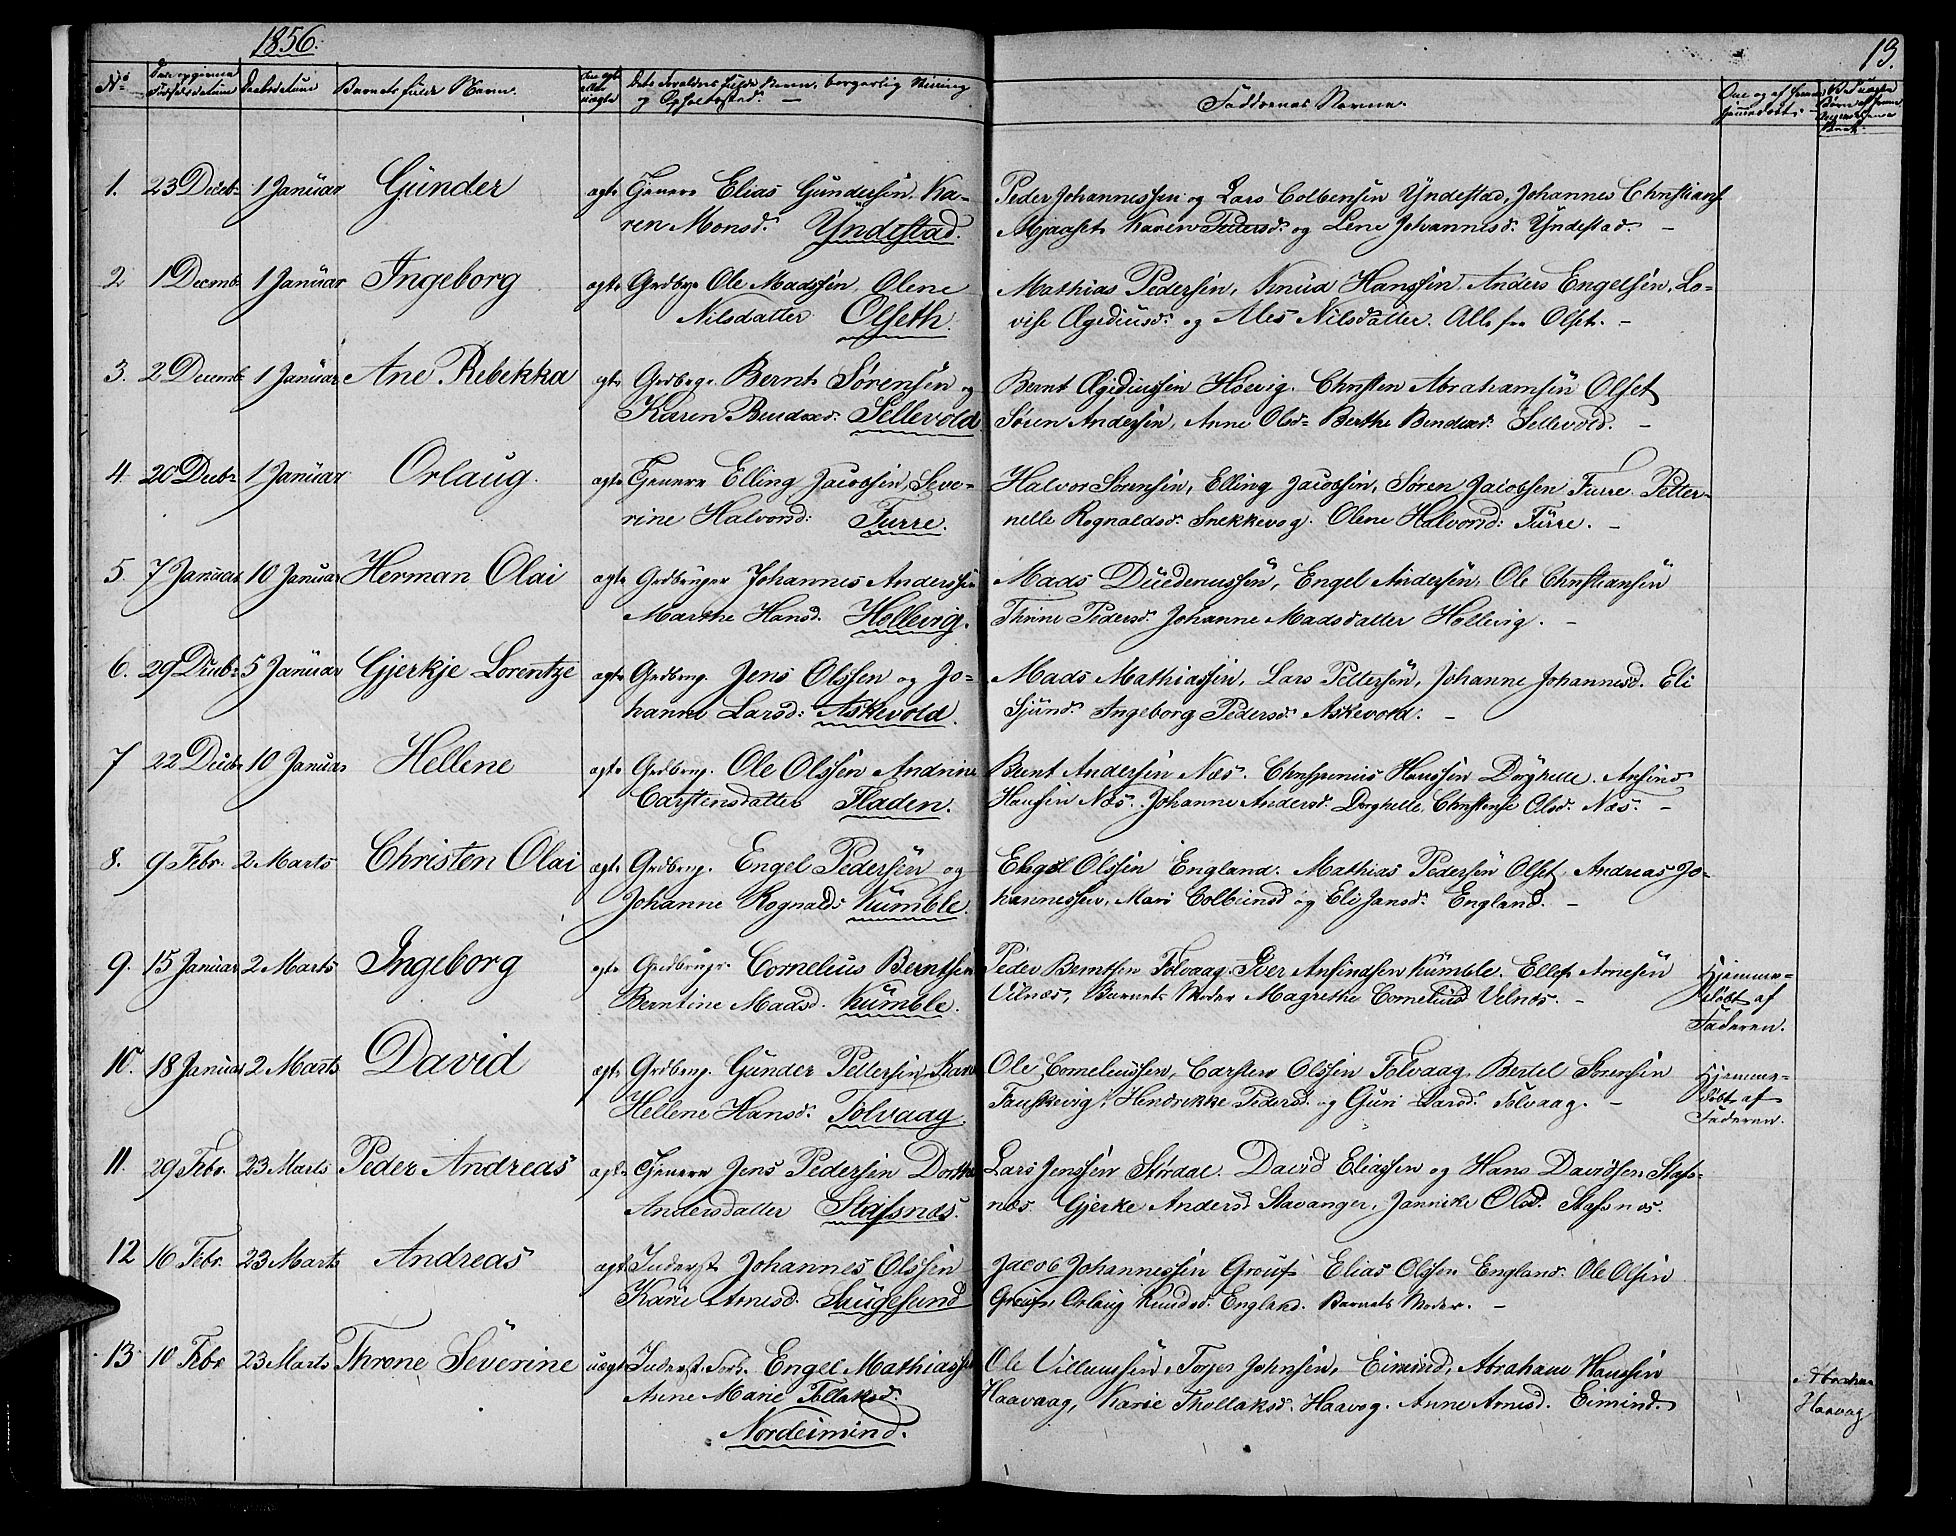 1856.
13.
No
Daabsdatum
Barnets fulde Navn.
Faddernes Navne.
1. 23 Decbr 1 Januar Gunder ægte Elias Gundersen, Ka-
ren Monsd: Yndestad.
Peder Johannessen og Lars Colbensen Yndestad, Johannes Christians
Karen Pedersd: og Lene Johannesd: Yndestad. -
2 1 Decemb 1 Januar Ingeborg ægte Grdbrgr Ole Madssen, Olene
Nilsdatter Olseth.
Mathias Pedersen, Knud Hanssen, Anders Engelsen, Lo-
vise Ægidiusd: og Ales Nilsdatter. Alle fra Olset. -
3. 2 Decemb 1 Januar Ane Rebekka ægte Grdbrgr. Bernt Sørensen og
Karen Bendixd: Sellevold.
Bernt Ægidiussen Høevig. Christen Abrahamsen Olset
Søren Andersen, Anne Olsd: Berthe Bendixd: Sellevold. -
4. 20 Decbr 1 Januar Orlaug. ægte Elling Jacobsen, Seve-
rine Halvorsd: Furre.
Halvor Sørensen, Elling Jacobsen, Søren Jacobsen Furre. Petter-
nelle Rognaldsd: Snekkevog. Olene Halvorsd: Furre. -
5. 7 Januar 10 Januar Herman Olai ægte Grdbruger Johannes Anderssen
Marthe Hansd. Hellevig.
Mads Engel Andersen, Ole Christiansen
Thrine Pedersd: Johanne Madsdatter Hellevig. -
6. 29 Decbr 5 Januar Gjerkje Lorentze ægte Grdbrug. Jens Olssen og Jo-
hanne Larsd: Askevold.
Mads Mathiassen, Lars Pettersen, Johanne Johannesd. Eli
Sjursd: Ingeborg Pedersd: Askevold. -
7 22 Decbr 10 Januar Hellene ægte Grdbrug. Ole Olssen Andrine
Carstensdatter Fladen.
Bernt Andersen Næs. Hanssen Dorghelle. Ansins
Hanssen Næs. Johanne Andersd. Dorghelle, Christense Olsd. Næs. -
8. 9 Febr. 2 Marts Christen Olai ægte Grdbrug. Engel Pedersen og
Johanne Rognalds Kumble.
Engel Olssen England. Mathias Pedersen Olset, Andreas Jo-
hannessen, Mari Colbensd og Eli Jansd: England. -
9. 15 Januar 2 Marts Ingeborg ægte Grdbruger Cornelius Berntsen
Berntine Madsd. Kumble.
Peder Berntsen Tolvaag. Iver Ansindsen Kumble. Ellef Arnesen
Vilnæs, Barnets Moder Magrethe Corneliusd Velnæs. -
Hjemme-
døbt af
Faderen.
10. 18 Januar 2 Marts David ægte Grdbrug. Gunder Pettersen, Kare
Hellene Hansd: Tolvaag.
Ole Corneliussen, Carsten Olssen Tolvaag, Bertel Sørensen
Fauskevig, Hendrikke Pedersd. og Guri Larsd: Tolvaag. -
Hjemme-
døbt af
Faderen.
11. 29 Febr. 23 Marts Peder Andreas ægte Jens Pedersen Dorthe
Andersdatter Stafsnæs.
Lars Jenssen Stordal. David Eliassen og Hans Davidsen Stafs-
næs. Gjerke Andersd Stavanger, Jannike Olsd. Stafsnæs.
12 16 Febr. 23 Marts Andreas ægte Inderst Johannes Olssen
Kari Arnesd. Saugesund
Jacob Johannessen Elias Olssen England. Ole Olsen
Orlaug Knudsd. England. Barnets Moder. -
13 10 Febr 23 Marts Throne Severine uægte Inderst. Engel Mathiassen
Anne Marie Tollaksd.
Nordeimind.
Ole Villumssen, Torjer Johnsen, Eimind, Abraham Hanssen
Haavaag, Karie Thollaksd. Haavog. Anne Arnesd. Eimind.
Abraham
Haavag